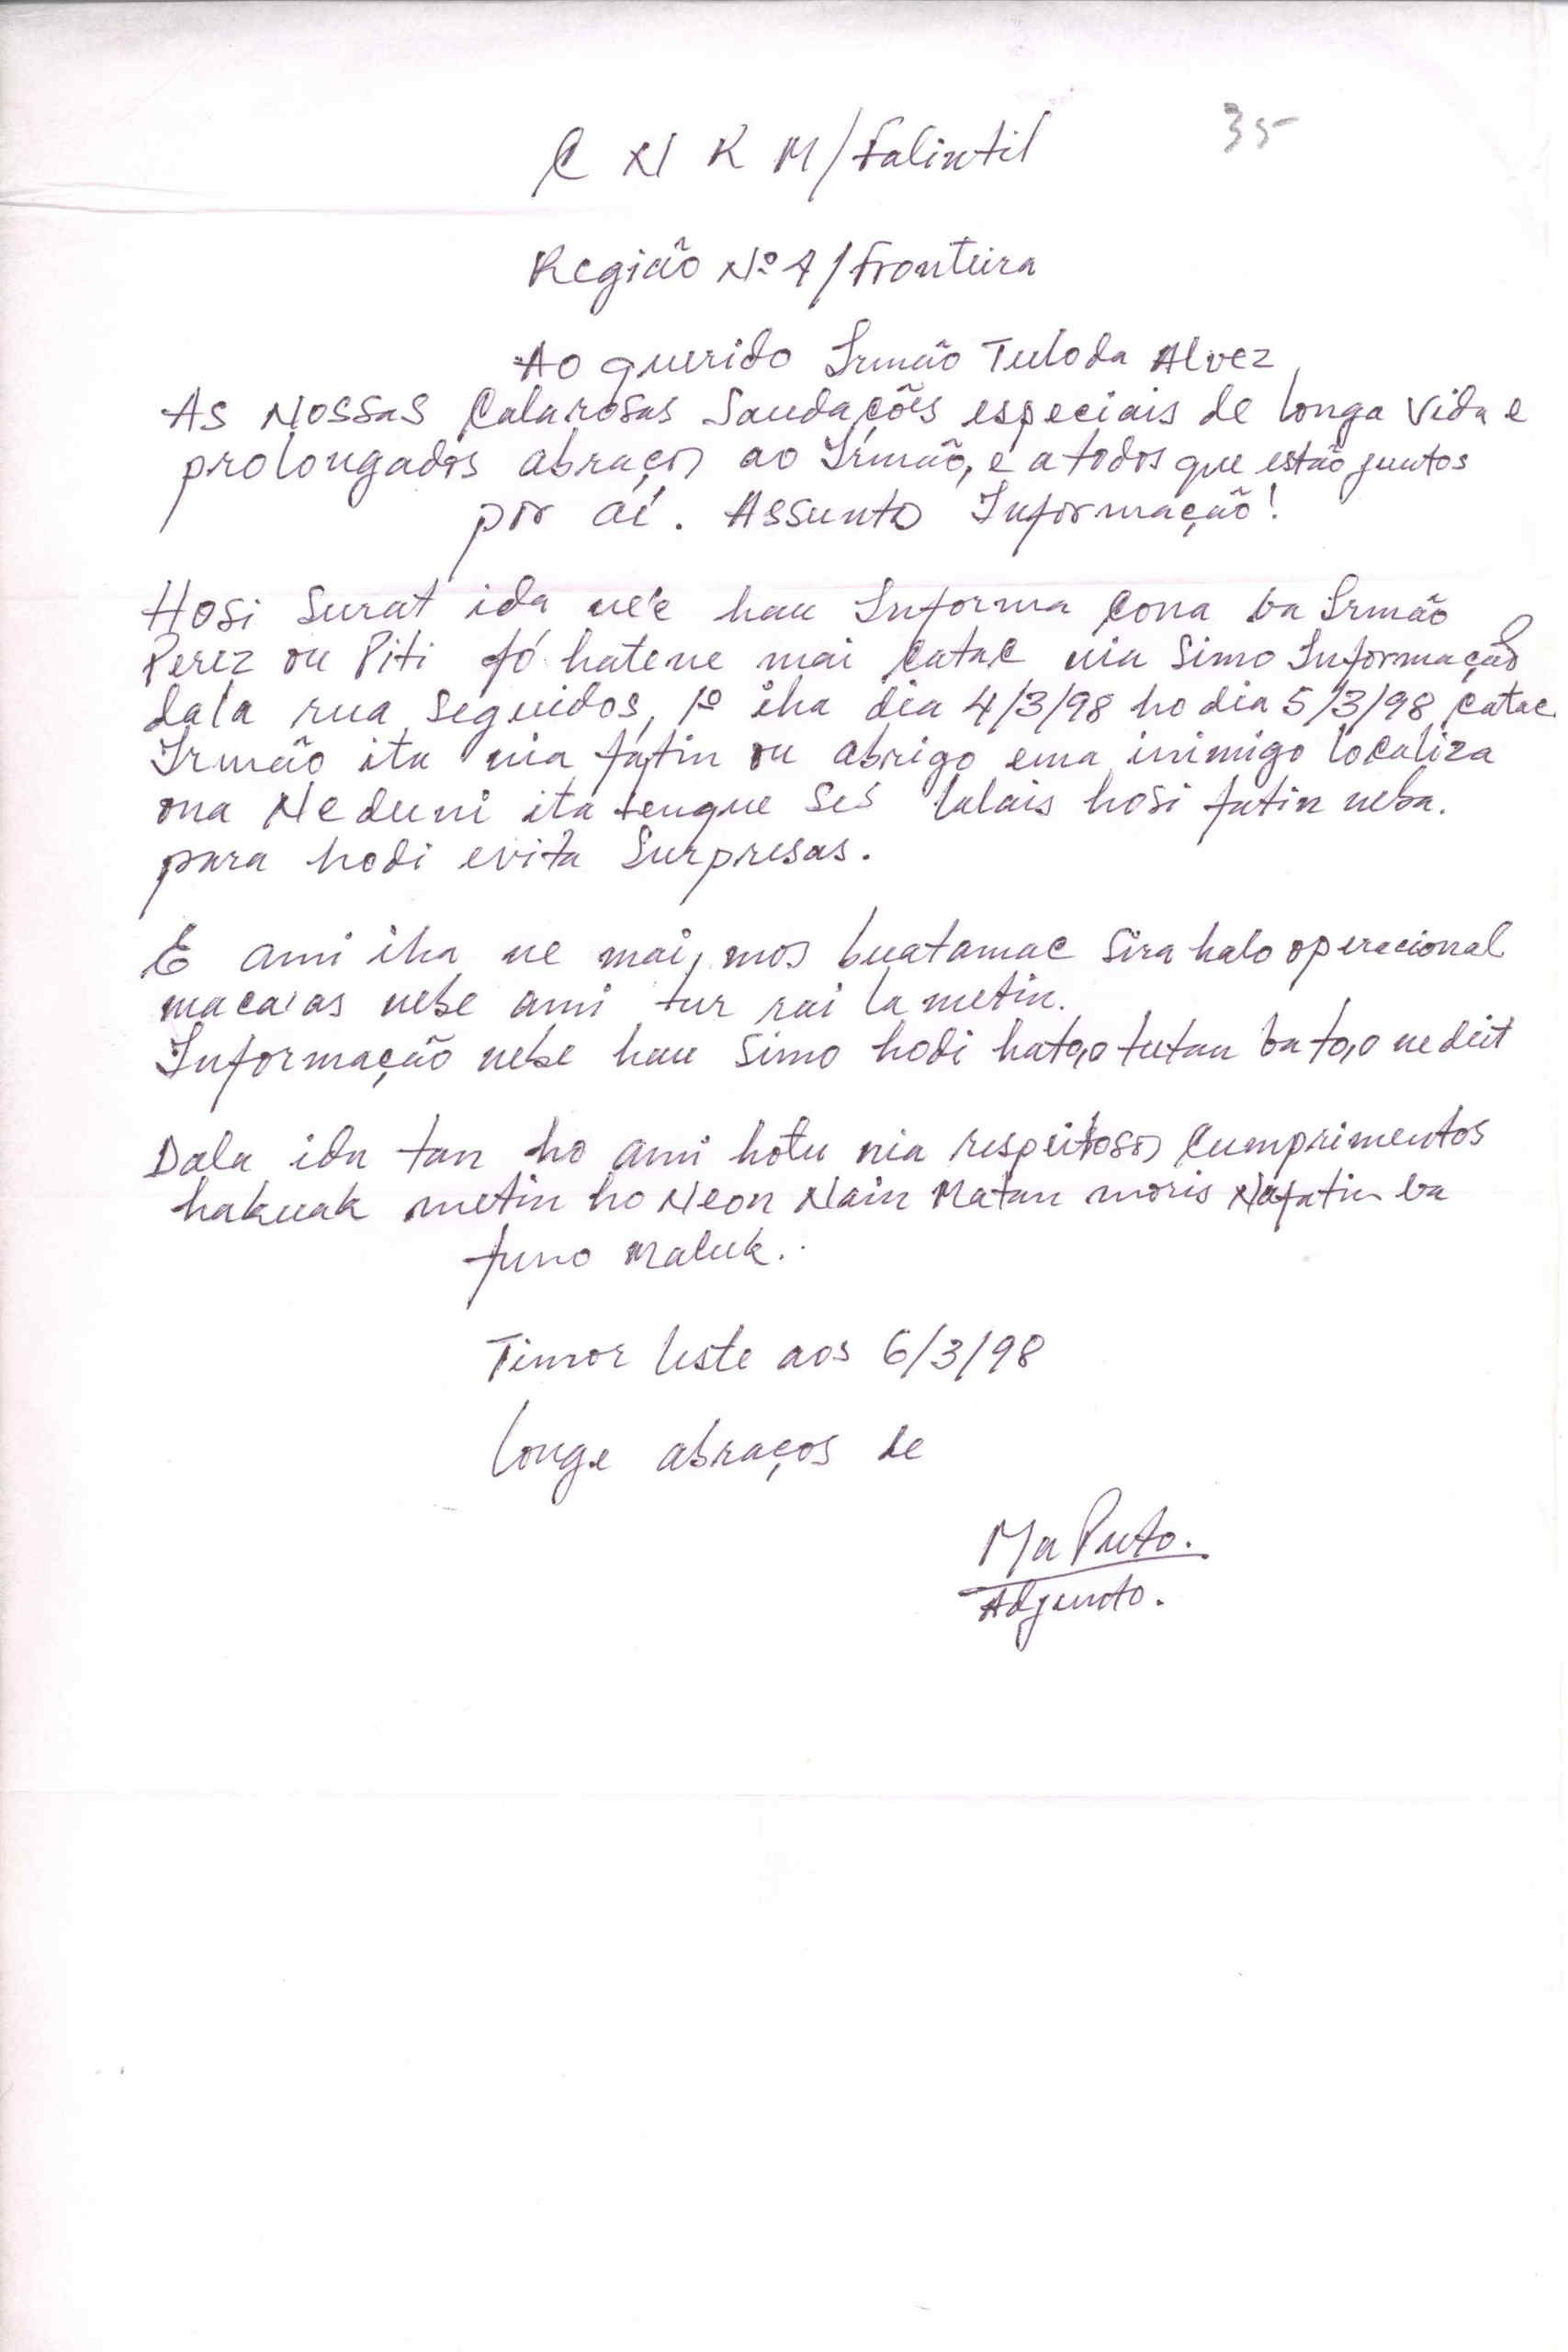 35
C N R M / Falintil
Região Nº 4 / Fronteira
Ao querido Irmão Tuloda Alvez
As Nossas Calarosas Saudações especiais de longa vida e
prolongados abraços ao Irmão, e a todos que estão juntos
por aí. Assunto Informação!
Hosi Surat ida ne'e hau Informa cona ba Irmão
Perez ou Piti fó hatene mai catac nia Simo Informação
dala rua seguidos, 1º iha dia 4/3/98 ho dia 5/3/98 catac
Irmão ita nia fatin ou abrigo ema inimigo localiza
ona Neduni ita tenque Ses lalais hosi fatin neba.
para hodi evita Surpresas.
E ami iha ne mai, mos buatamac Sira halo operacional
maca'as nebe ami tur rai la metin.
Informação nebe hau Simo hodi hato,o tutan ba to,o ne deit
Dala ida tan ho ami hotu nia respeitosos Cumprimentos
hakuak metin ho Neon Nain Matan moris Nafatin ba
funo maluk..
Timor Leste aos 6/3/98
Longe abraços de
Adjunto.